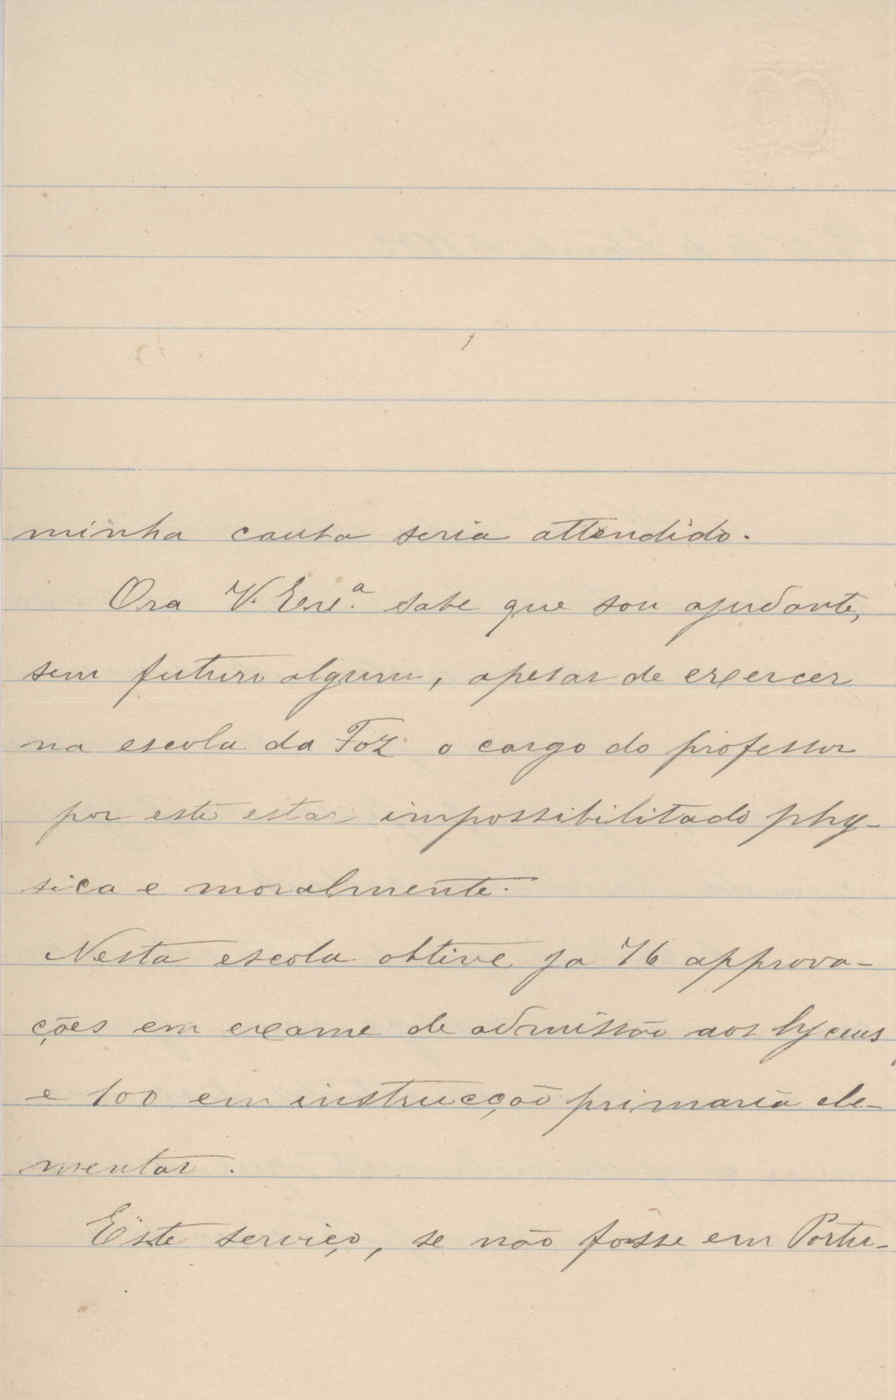 minha causa seria attendido.
Ora V. Exc.ª sabe que sou ajudante,
sem futuro algum, apesar de exercer
na escola da Foz o cargo do professor
por este estar impossibilitado phy-
sica e moralmente.
Nesta escola obtive ja 76 approva-
ções em exame de admissão aos lyceus,
e 100 em instrucção primaria ele-
mentar.
Este serviço, se não fosse em Portu-